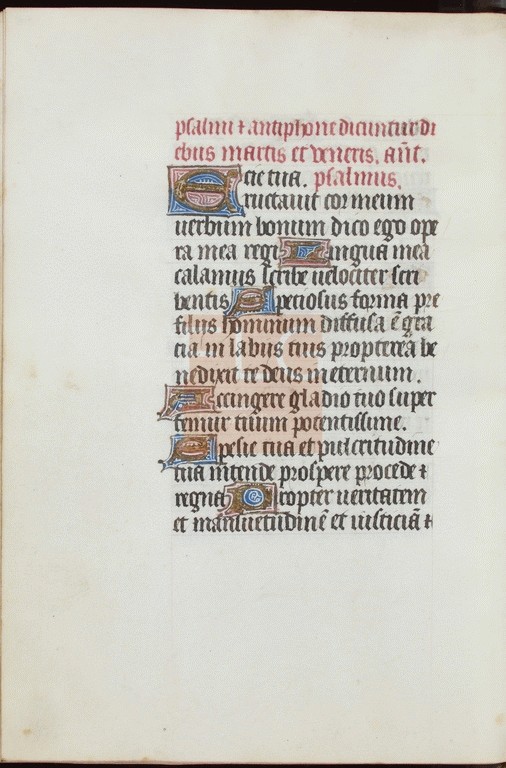 psalmi ⁊ antiphone dicuntur di
ebus martis et veneris. añt.
Specie tua. psalmus.
Eructauit cor meum
uerbum bonum dico ego ope
ra mea regi Lingua mea
calamus scribe uelociter scri
bentis Speciosus forma pre
filijs hominum diffusa ē gra
cia in labijs tuis propterea be
nedixit te deus in eternum.
Accingere gladio tuo super
femur tuum potentissime.
Specie tua et pulcritudine
tua intende prospere procede ⁊
regna Propter ueritatem
et mansuetudinē et iusticiā ⁊